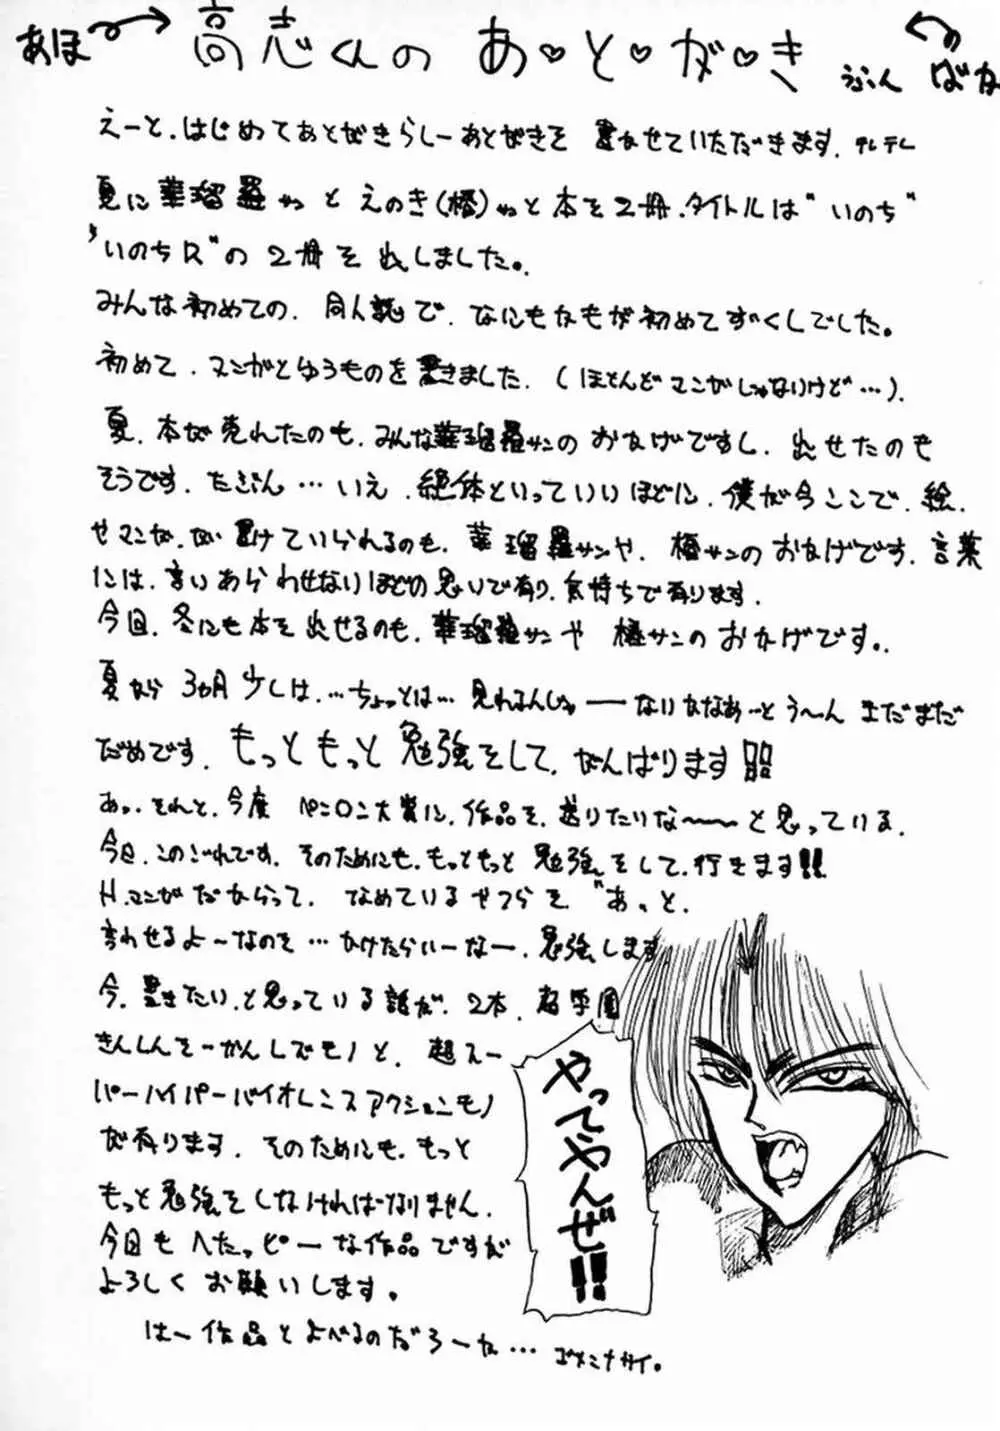 あほ
高志くんの あ・と・が・き
ばか
えーと、はじめてあとがきらしーあとがきを 書かせていただきます、テレテレ
夏に華瑠羅サンと えのき(榎)サンと本を2冊、タイトルは“いのち”
“いのちR”の 2冊を出しました。
みんな初めての、同人誌で、なにもかもが初めてずくしでした。
初めて、マンガとゆうものを書きました、(ほとんどマンガじゃないけど…)。
夏、本が売れたのも、みんな華瑠羅サンの おかげですし、出せたのも
そうです、たぶん…いえ、絶体といっていいほどに、僕が今ここで、絵、
やマンガ、が書けていられるのも、華瑠羅サンや、榎サンの おかげです、言葉
には、言いあらわせないほどの思いで有り、気持ちで有ります。
今回、冬にも本を出せるのも、華瑠羅サンや 榎サンの おかげです。
夏から 3ヵ月 少しは、…ちょっとは…見れるんじゃーーないかなあーと うーん まだまだ
だめです、もっともっと勉強をして、がんばります!!
あっ、それと、今度 ペンロン大賞に、作品を、送りたいな〜〜と思っている、
今日、このごろです、そのためにも、もっともっと 勉強をして、行きます!!
H、マンガ だからって、なめているやつらを “あっと、
言わせるよーなのを…かけたらいーなー、勉強します
今、書きたい、と思っている話が、2本、超学園
きんしんそーかんレズモノと、超スー
パーハイパーバイオレンスアクションモノ
が有ります、そのためにも、もっと
もっと勉強をしなければなりません、
今回も へたっピーな作品ですが
よろしく お願いします。
はー作品とよべるのだろーか… ゴメンナサイ。
やってやんぜ!!